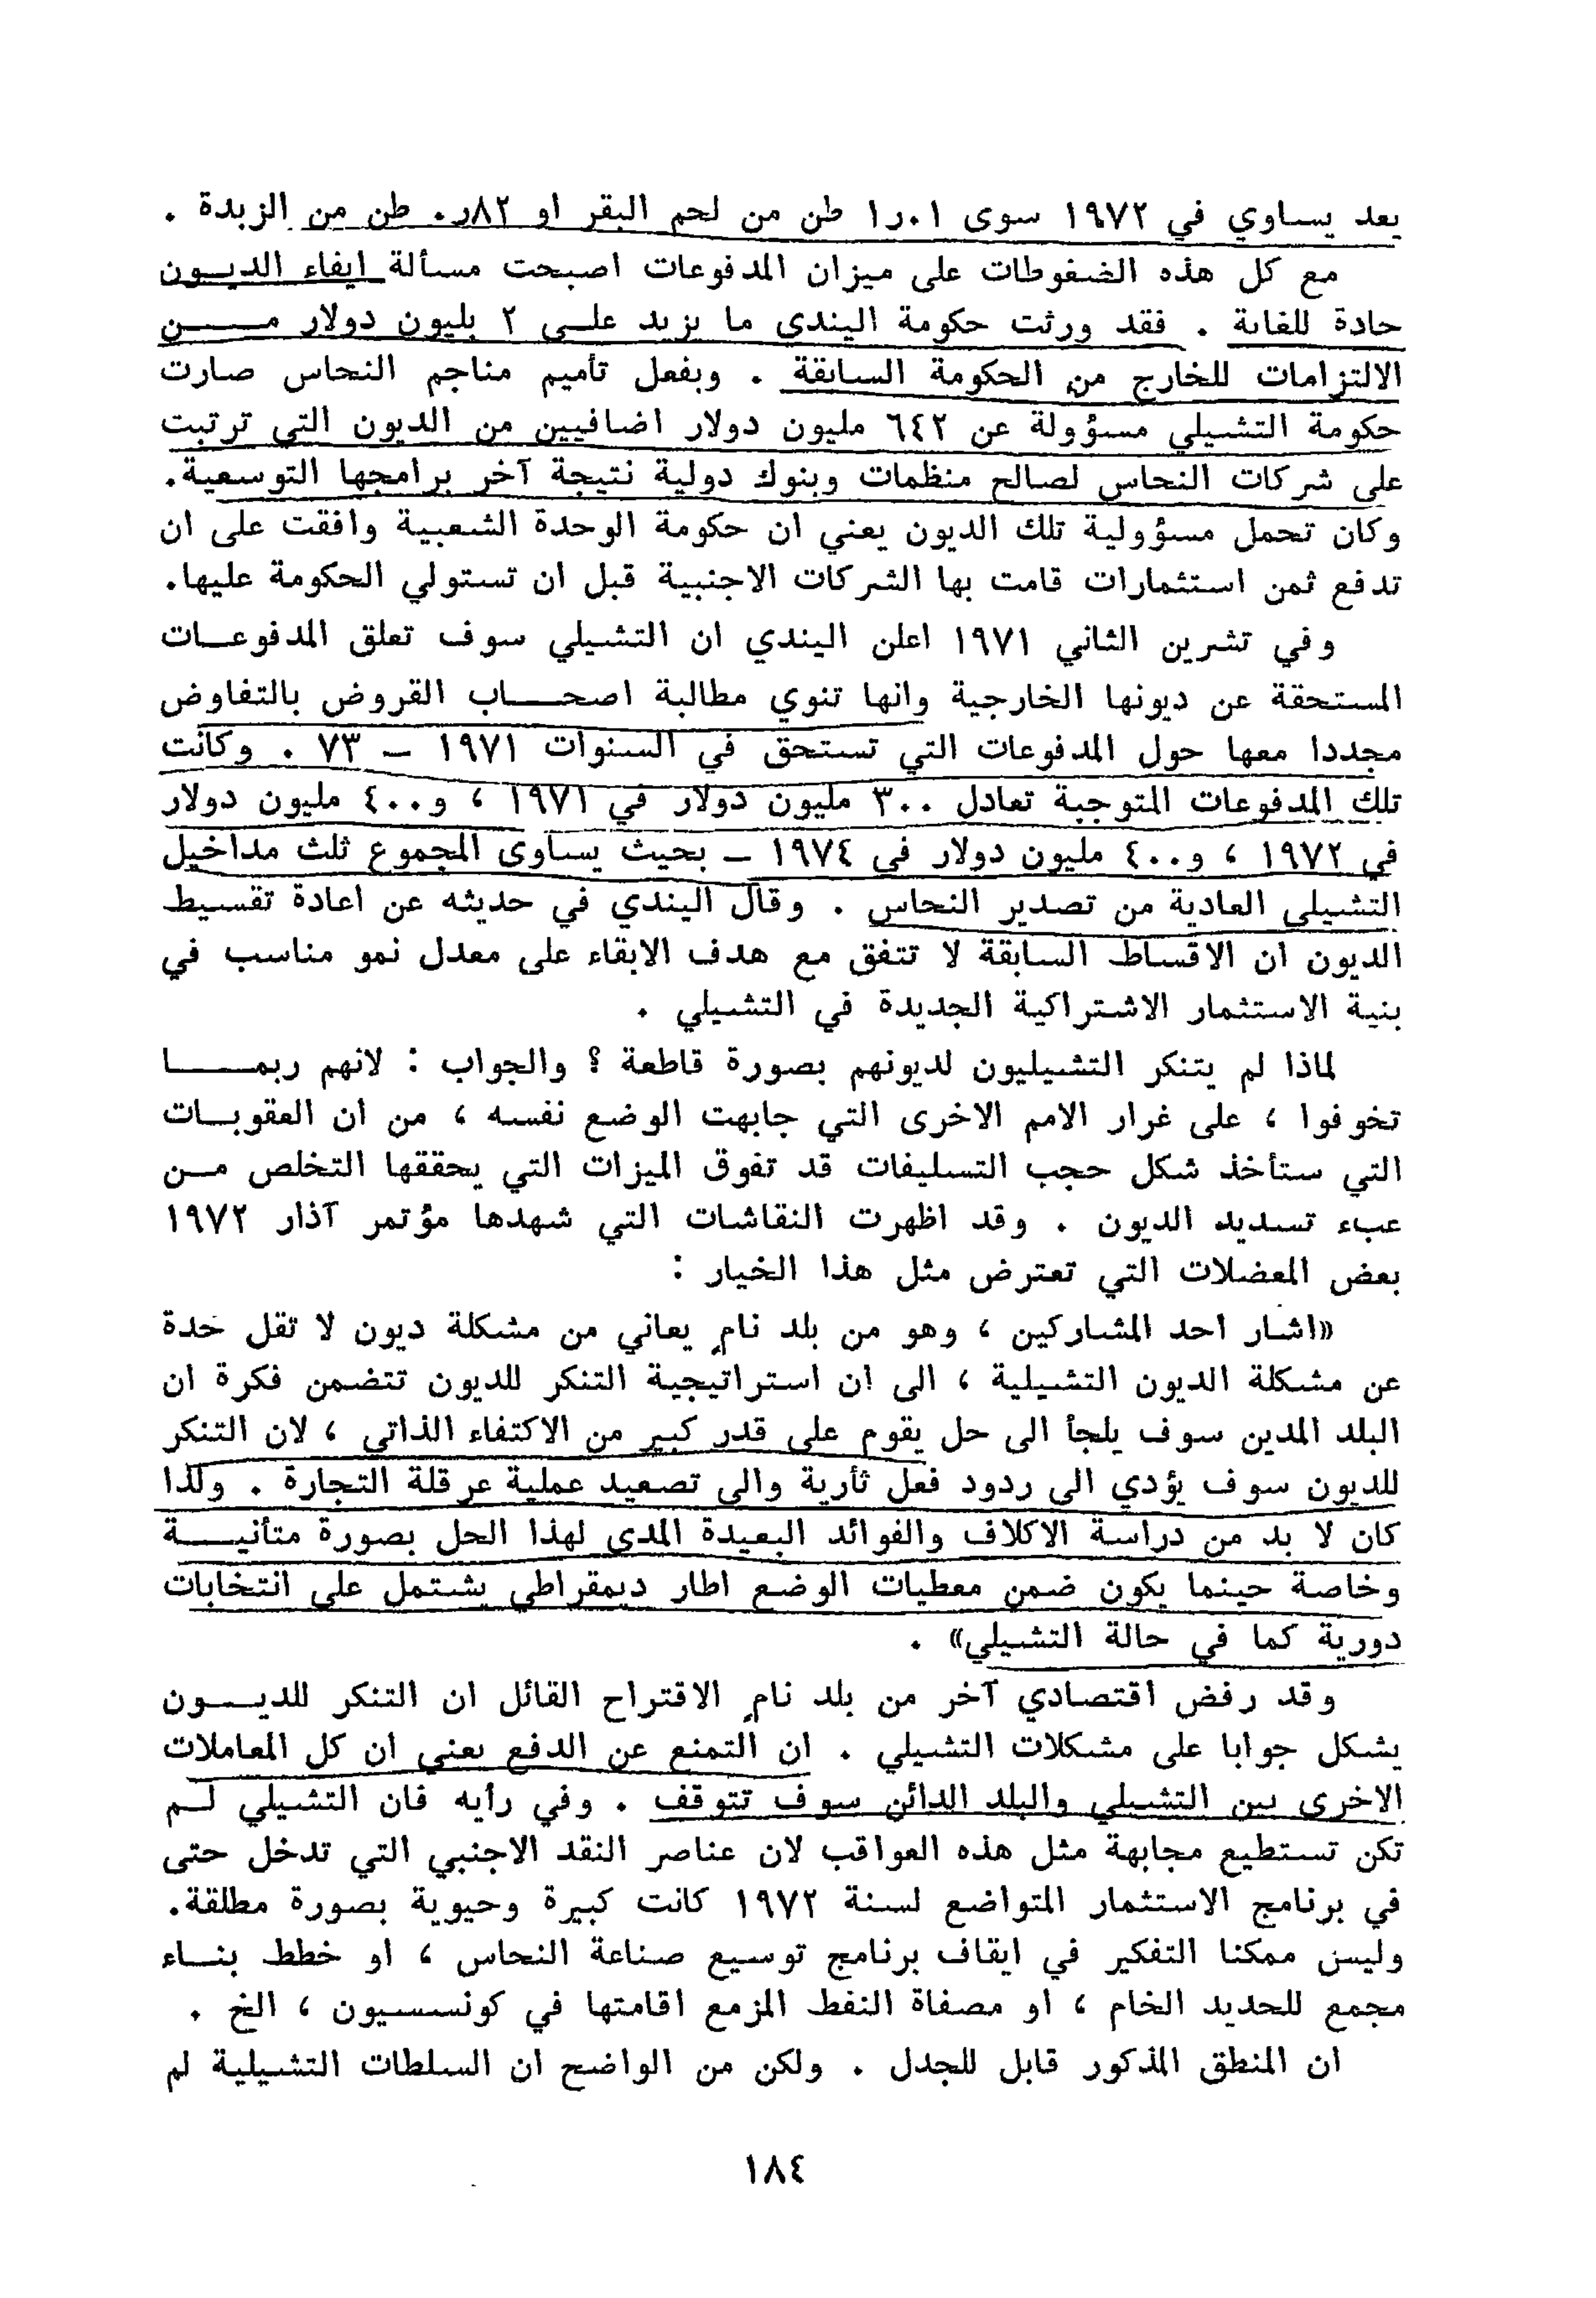 يعد يساوي في ١٩٧٢ سوى ١٫٠١ طن من لحم البقر او ٨٢ر٠ طن من الزبدة .
مع كل هذه الضغوطات على ميزان المدفوعات اصبحت مسألة ايفاء الديــون
حادة للغاية . فقد ورثت حكومة اليندي ما يزيد علــى ٢ بليون دولار مـــــن
الالتزامات للخارج من الحكومة السابقة . وبفعل تأميم مناجم النحاس صارت
حكومة التشيلي مسؤولة عن ٦٤٢ مليون دولار اضافيين من الديون التي ترتبت
على شركات النحاس لصالح منظمات وبنوك دولية نتيجة آخر برامجها التوسعية.
وكان تحمل مسؤولية تلك الديون يعني ان حكومة الوحدة الشعبية وافقت على ان
تدفع ثمن استثمارات قامت بها الشركات الاجنبية قبل ان تستولي الحكومة عليها.
وفي تشرين الثاني ١٩٧١ اعلن اليندي ان التشيلي سوف تعلق المدفوعــات
المستحقة عن ديونها الخارجية وانها تنوي مطالبة اصحـــــاب القروض بالتفاوض
مجددا معها حول المدفوعات التي تستحق في السنوات ١٩٧١ – ٧٣ . وكانت
تلك المدفوعات المتوجبة تعادل ٣٠٠ مليون دولار في ١٩٧١ ، و٤٠٠ مليون دولار
في ١٩٧٢ ، و٤٠٠ مليون دولار في ١٩٧٤ – بحيث يساوى المجموع ثلث مداخيل
التشيلي العادية من تصدير النحاس . وقال اليندي في حديثه عن اعادة تقسيط
الديون ان الاقساط السابقة لا تتفق مع هدف الابقاء على معدل نمو مناسب في
بنية الاستثمار الاشتراكية الجديدة في التشيلي .
لماذا لم يتنكر التشيليون لديونهم بصورة قاطعة ؟ والجواب : لانهم ربمـــــا
تخوفوا ، على غرار الامم الاخرى التي جابهت الوضع نفسه ، من ان العقوبــات
التي ستأخذ شكل حجب التسليفات قد تفوق الميزات التي يحققها التخلص مــن
عبء تسديد الديون . وقد اظهرت النقاشات التي شهدها مؤتمر آذار ١٩٧٢
بعض المعضلات التي تعترض مثل هذا الخيار :
«اشار احد المشاركين ، وهو من بلد نامٍ يعاني من مشكلة ديون لا تقل حدة
عن مشكلة الديون التشيلية ، الى ان استراتيجية التنكر للديون تتضمن فكرة ان
البلد المدين سوف يلجأ الى حل يقوم على قدر كبير من الاكتفاء الذاتي ، لان التنكر
للديون سوف يؤدي الى ردود فعل ثأرية والى تصعيد عملية عرقلة التجارة . ولذا
كان لا بد من دراسة الاكلاف والفوائد البعيدة المدى لهذا الحل بصورة متأنيـــــة
وخاصة حينما يكون ضمن معطيات الوضع اطار ديمقراطي يشتمل على انتخابات
دورية كما في حالة التشيلي» .
وقد رفض اقتصادي آخر من بلد نامٍ الاقتراح القائل ان التنكر للديـــون
يشكل جوابا على مشكلات التشيلي . ان التمنع عن الدفع يعني ان كل المعاملات
الاخرى بين التشيلي والبلد الدائن سوف تتوقف . وفي رأيه فان التشيلي لــم
تكن تستطيع مجابهة مثل هذه العواقب لان عناصر النقد الاجنبي التي تدخل حتى
في برنامج الاستثمار المتواضع لسنة ١٩٧٢ كانت كبيرة وحيوية بصورة مطلقة.
وليس ممكنا التفكير في ايقاف برنامج توسيع صناعة النحاس ، او خطط بنــاء
مجمع للحديد الخام ، او مصفاة النفط المزمع اقامتها في كونسسيون ، الخ .
ان المنطق المذكور قابل للجدل . ولكن من الواضح ان السلطات التشيلية لم
١٨٤